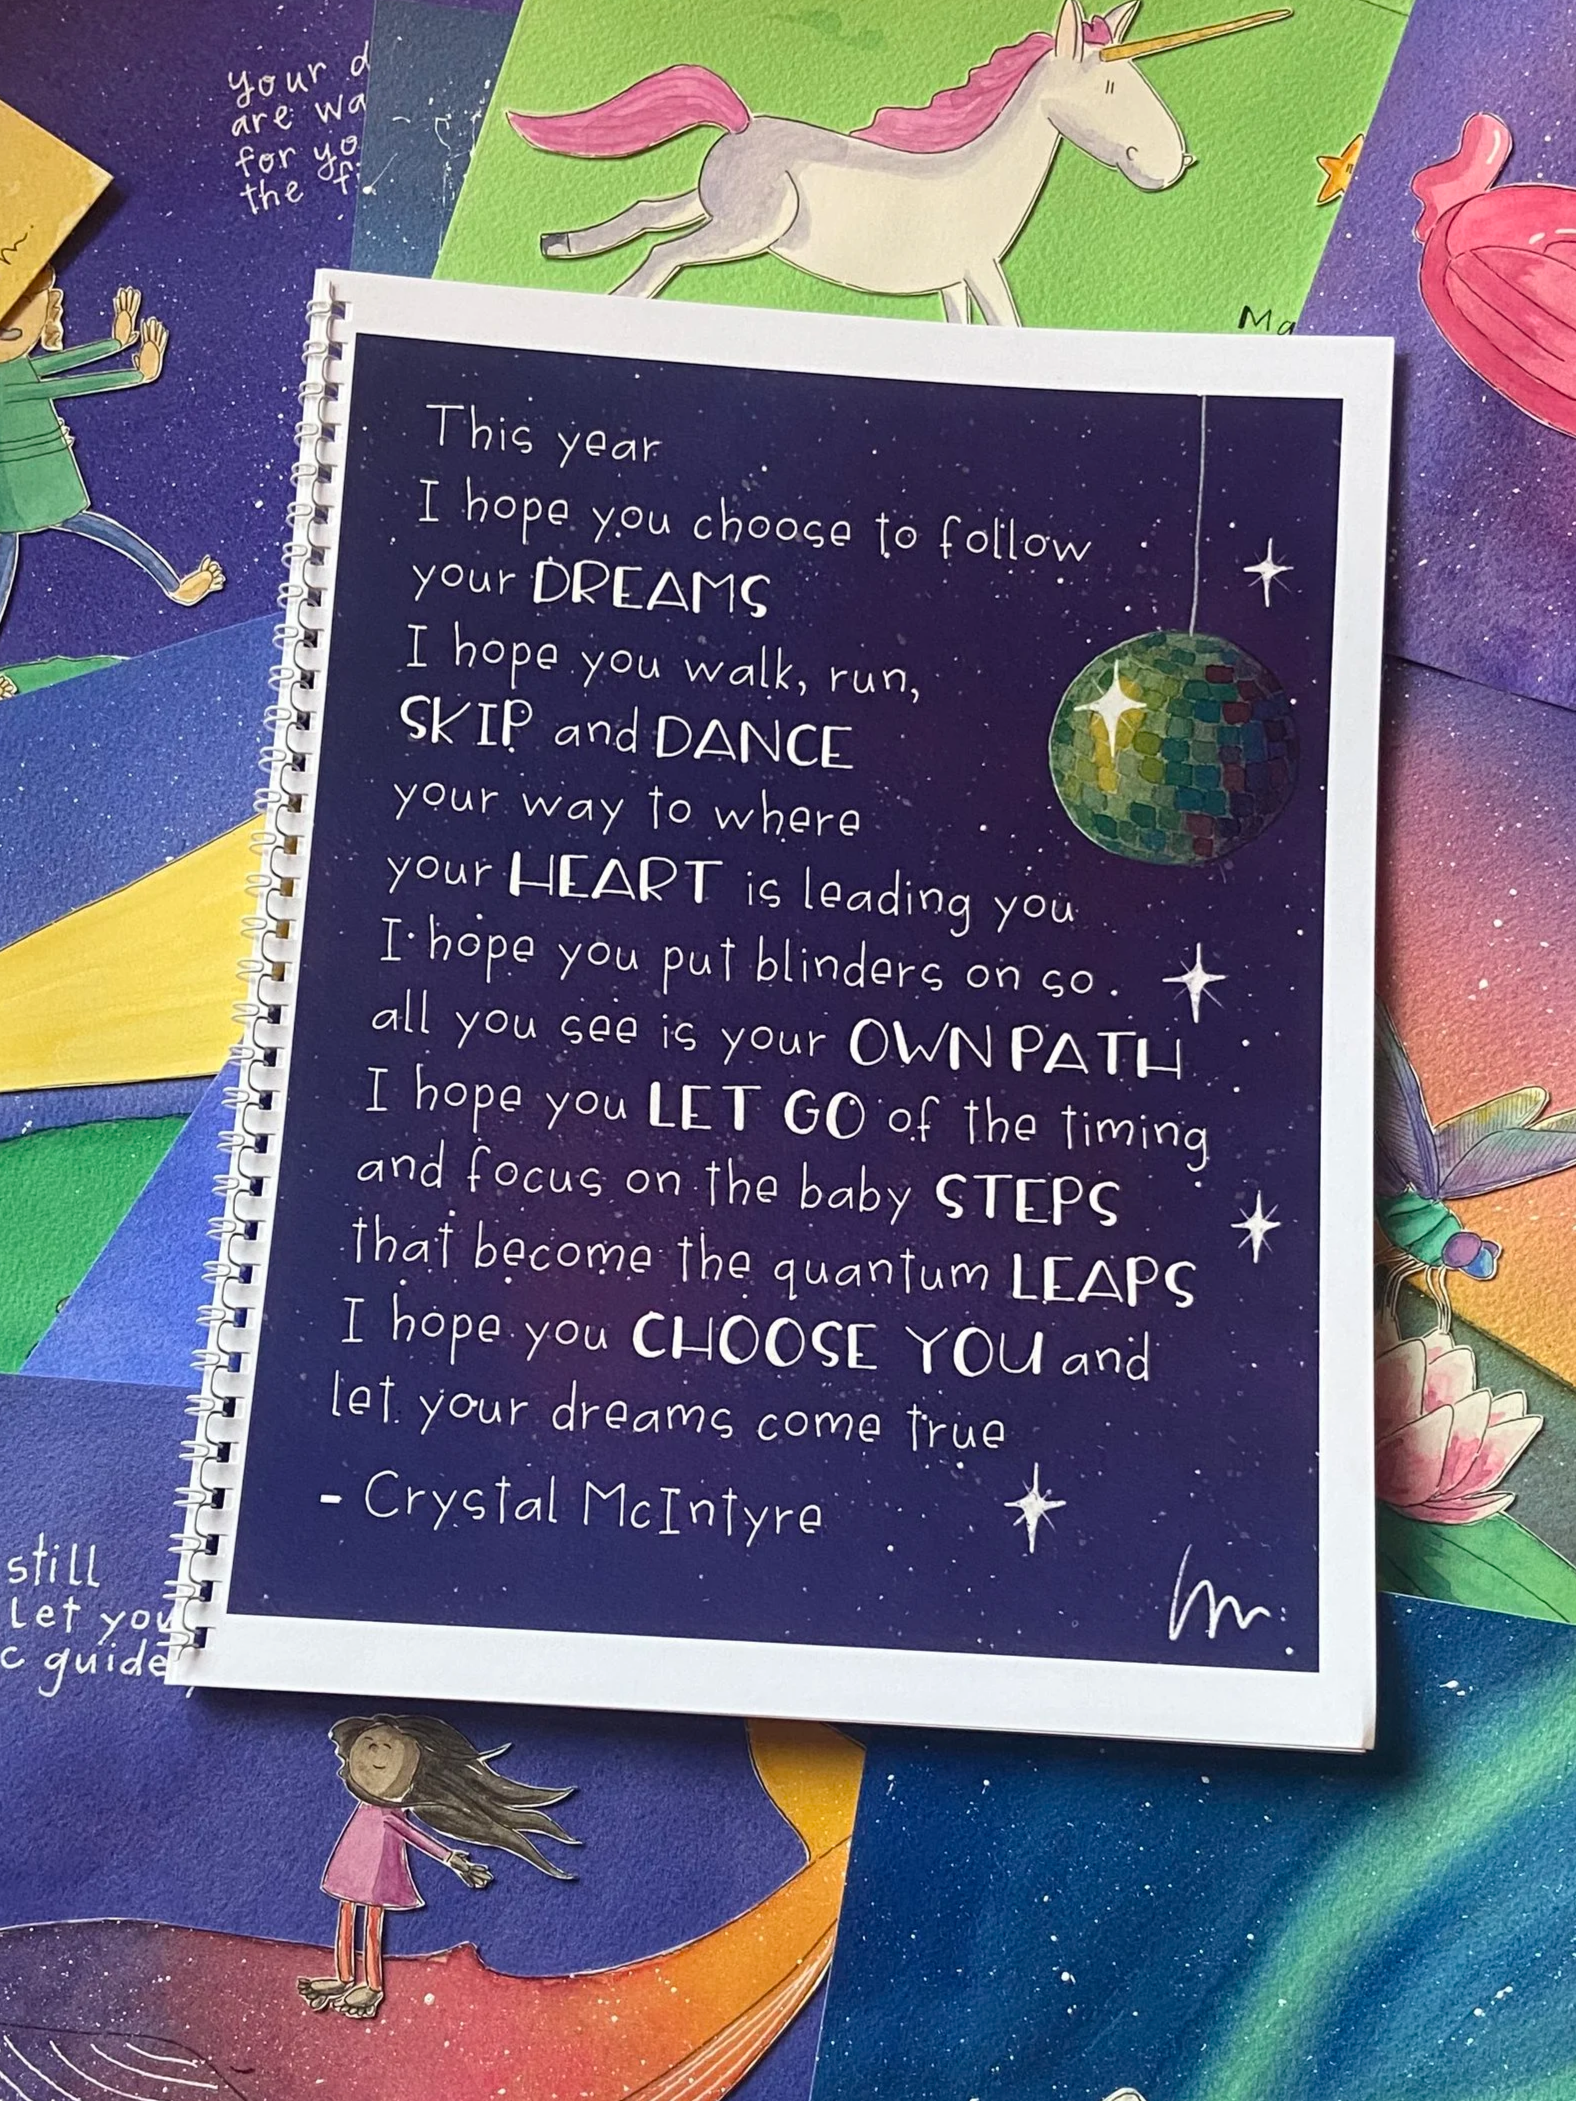 your
are
for
the
Ma
This year
I hope you choose to follow
your DREAMS
I hope you walk, run,
SKIP and DANCE
your way to where
your HEART is leading you
I hope you put blinders on so
all you see is your OWN PATH
I hope you LET GO of the timing
and focus on the baby STEPS
that become the quantum LEAPS
I hope you CHOOSE YOU and
let your dreams come true
- Crystal McIntyre
still
Let you
c guide